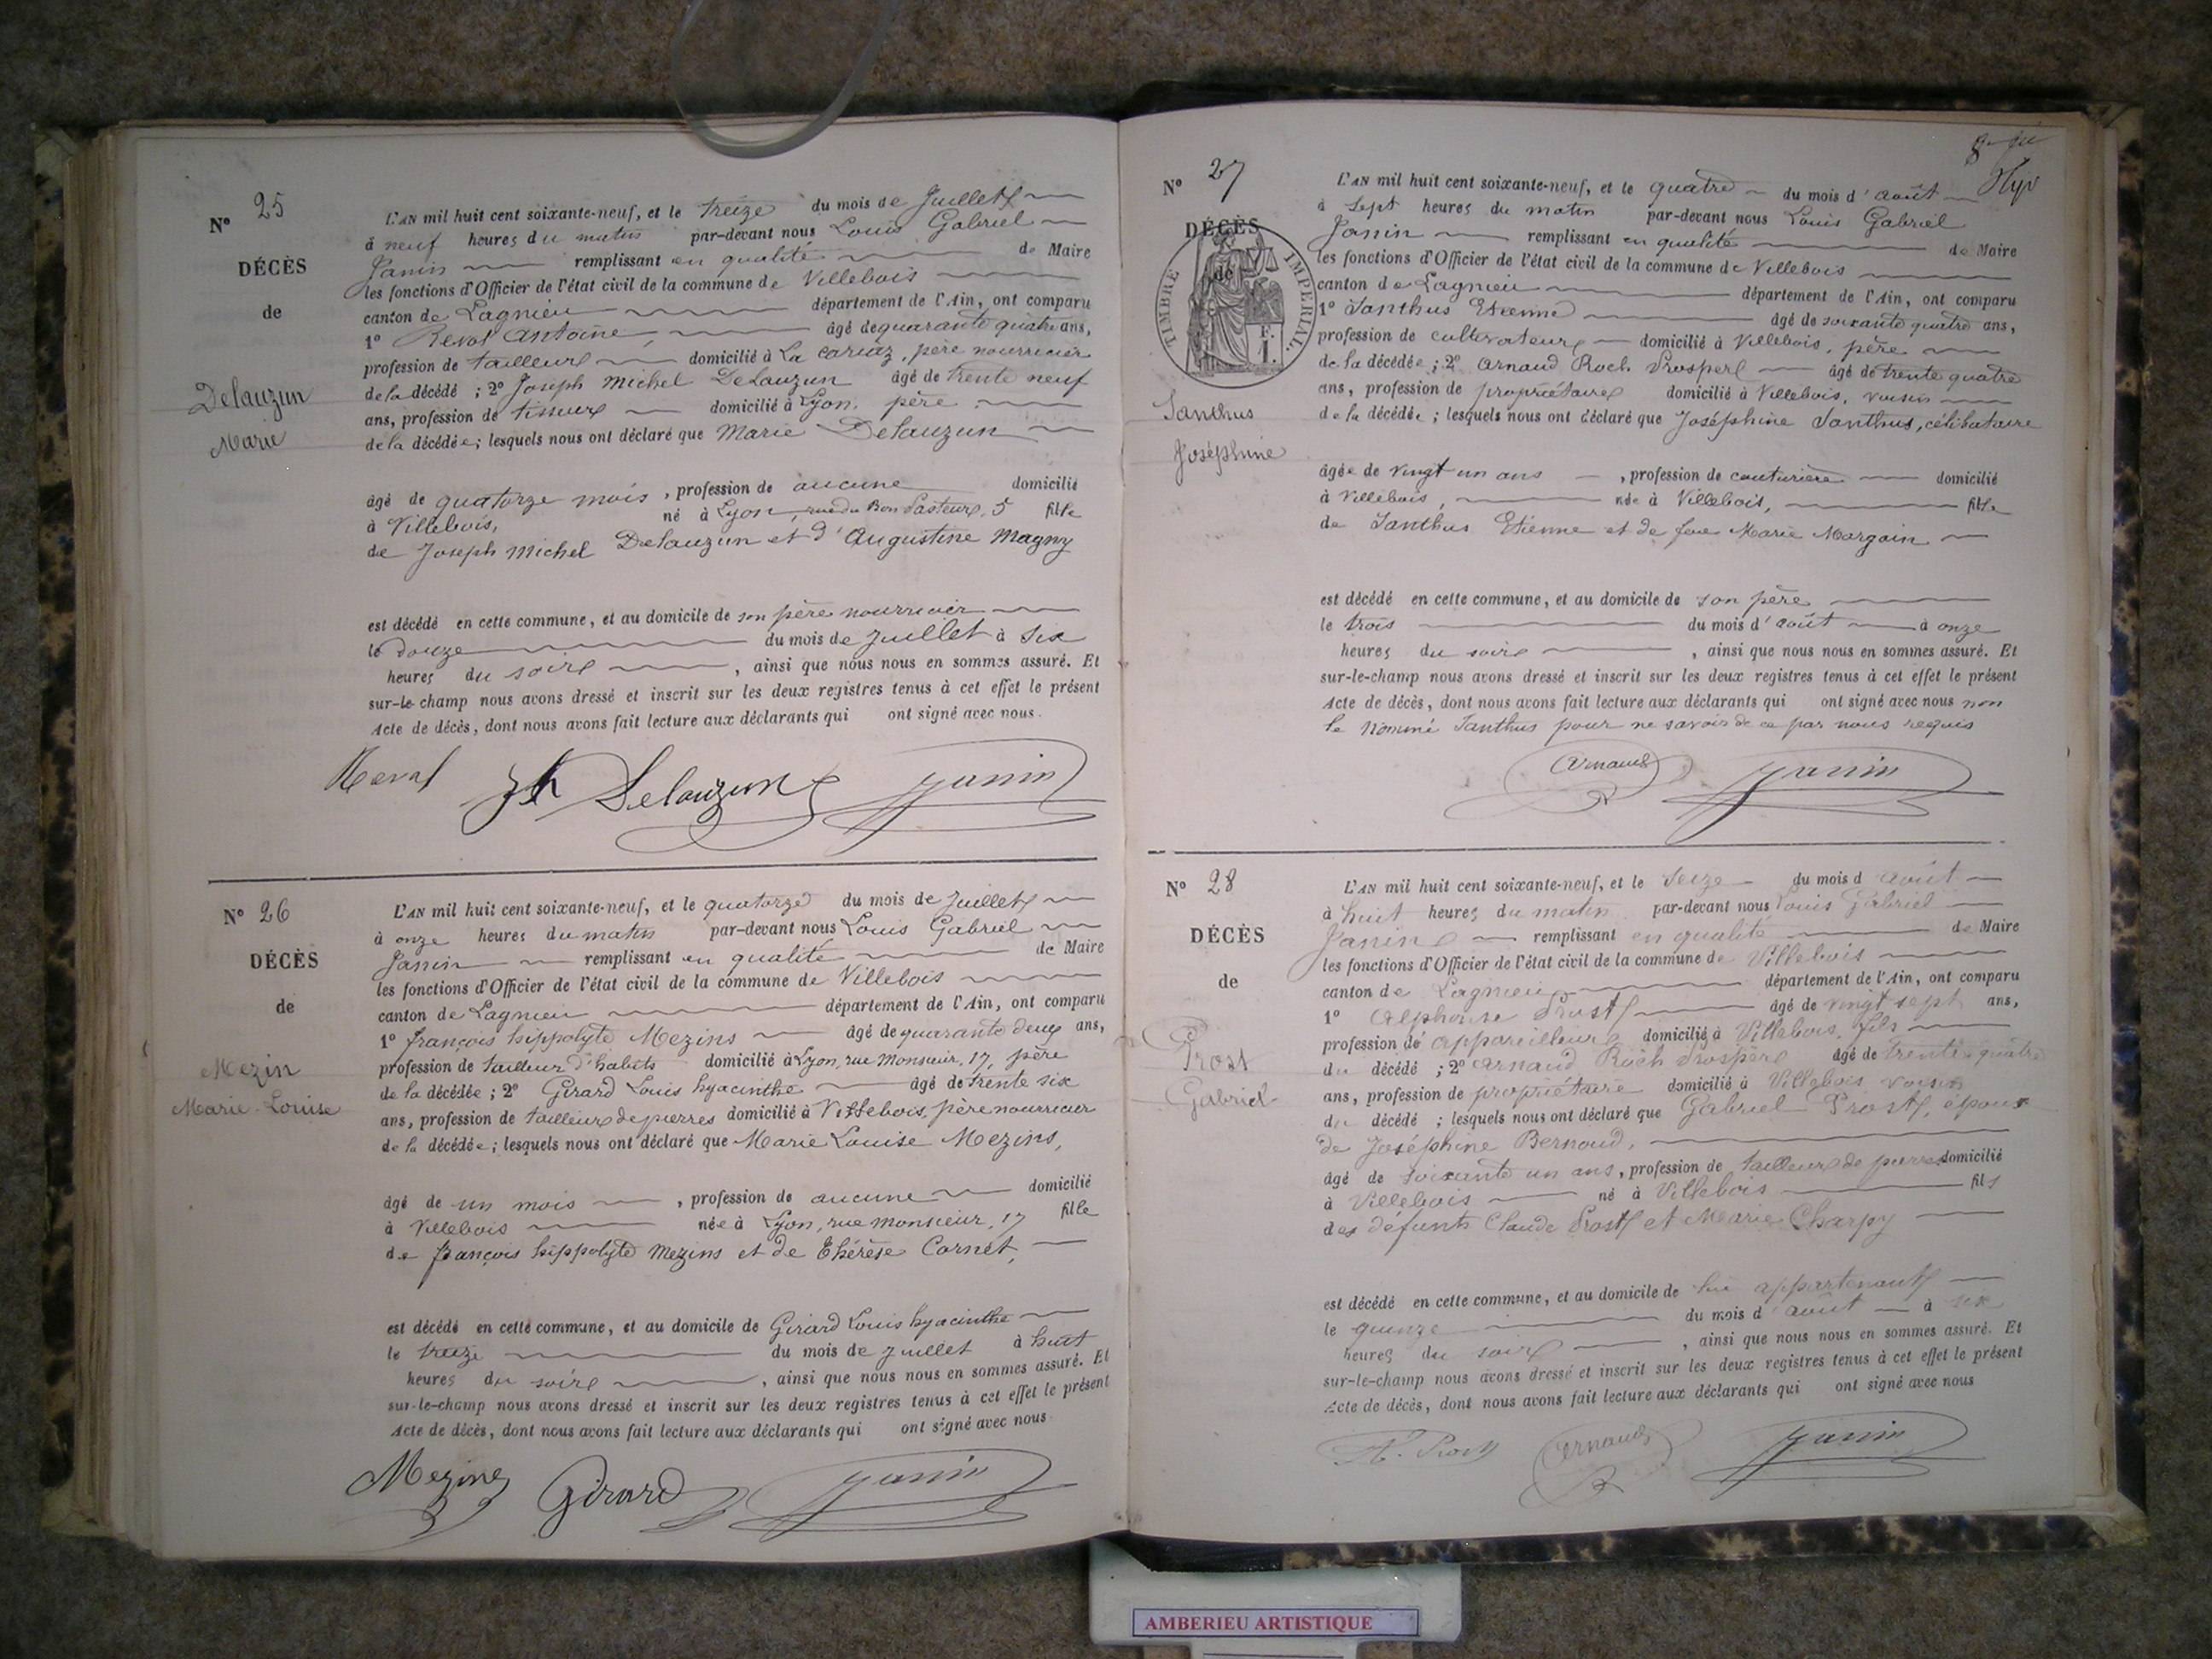 N° 25
DÉCÈS
de
Delauzun
Marie
L'AN mil huit cent soixante-neuf, et le treize du mois de Juillet
à neuf heures du matin par-devant nous Louis Gabriel
Janin remplissant en qualité de Maire
les fonctions d'Officier de l'état civil de la commune de Villebois
canton de Lagnieu département de l'Ain, ont comparu
1° Antoine, âgé de quarante quatre ans,
profession de tailleur domicilié à La cariaz, père nourricier
de la décédé ; 2° Joseph Michel Delauzun âgé de trente neuf
ans, profession de tisseur domicilié à Lyon, père
de la décédée ; lesquels nous ont déclaré que Marie Delauzun
âgé de quatorze mois, profession de aucune domicilié
à Villebois, né à Lyon, rue du Bon Pasteur, 5 fille
de Joseph Michel Delauzun et d'Augustine Magny
est décédé en cette commune, et au domicile de son père nourricier
le douze du mois de Juillet à six
heures du soir, ainsi que nous nous en sommes assuré. Et
sur-le-champ nous avons dressé et inscrit sur les deux registres tenus à cet effet le présent
Acte de décès, dont nous avons fait lecture aux déclarants qui ont signé avec nous.
Delauzun Janin
N° 26
DÉCÈS
de
Mezin
Marie-Louise
L'AN mil huit cent soixante-neuf, et le quatorze du mois de Juillet
à onze heures du matin par-devant nous Louis Gabriel
Janin remplissant en qualité de Maire
les fonctions d'Officier de l'état civil de la commune de Villebois
canton de Lagnieu département de l'Ain, ont comparu
1° françois hippolyte Mezins âgé de quarante deux ans,
profession de tailleur d'habits domicilié à Lyon, rue Monsieur, 17, père
de la décédée ; 2° Girard Louis hyacinthe âgé de trente six
ans, profession de tailleur de pierres domicilié à Villebois, père nourricier
de la décédée ; lesquels nous ont déclaré que Marie Louise Mezins,
âgé de un mois, profession de aucune domicilié
à Villebois née à Lyon, rue monsieur, 17 fille
de françois hippolyte Mezins et de Thérèse Cornet,
est décédé en cette commune, et au domicile de Girard Louis hyacinthe
le treize du mois de Juillet à huit
heures du soir, ainsi que nous nous en sommes assuré. Et
sur-le-champ nous avons dressé et inscrit sur les deux registres tenus à cet effet le présent
Acte de décès, dont nous avons fait lecture aux déclarants qui ont signé avec nous.
Mezins Girard Janin
N° 27
DÉCÈS
de
TIMBRE IMPERIAL.
F.
1.
Santhus
Joséphine
L'AN mil huit cent soixante-neuf, et le quatre du mois d'août
à sept heures du matin par-devant nous Louis Gabriel
Janin remplissant en qualité de Maire
les fonctions d'Officier de l'état civil de la commune de Villebois
canton de Lagnieu département de l'Ain, ont comparu
1° Santhus Etienne âgé de soixante quatre ans,
profession de cultivateur domicilié à Villebois, père
de la décédée ; 2° Arnaud Roch Prosper âgé de trente quatre
ans, profession de propriétaire domicilié à Villebois, voisin
de la décédée ; lesquels nous ont déclaré que Joséphine Santhus, célibataire
âgée de vingt un ans, profession de couturière domicilié
à Villebois, née à Villebois, fille
de Santhus Etienne et de feue Marie Margain
est décédé en cette commune, et au domicile de son père
le trois du mois d'août à onze
heures du soir, ainsi que nous nous en sommes assuré. Et
sur-le-champ nous avons dressé et inscrit sur les deux registres tenus à cet effet le présent
Acte de décès, dont nous avons fait lecture aux déclarants qui ont signé avec nous non
le nommé Santhus pour ne savoir de ce par nous requis
Arnaud Janin
N° 28
DÉCÈS
de
Prost
Gabriel
L'AN mil huit cent soixante-neuf, et le seize du mois d'août
à huit heures du matin par-devant nous Louis Gabriel
Janin remplissant en qualité de Maire
les fonctions d'Officier de l'état civil de la commune de Villebois
canton de Lagnieu département de l'Ain, ont comparu
1° Alphonse Prost âgé de vingt sept ans,
profession de appareilleur domicilié à Villebois, fils
du décédé ; 2° Arnaud Roch Prosper âgé de trente quatre
ans, profession de propriétaire domicilié à Villebois voisin
du décédé ; lesquels nous ont déclaré que Gabriel Prost, époux
de Joséphine Bernoud,
âgé de soixante un ans, profession de tailleur de pierres domicilié
à Villebois né à Villebois fils
des défunts Claude Prost et Marie Charpy
est décédé en cette commune, et au domicile de lui appartenant
le quinze du mois d'août à six
heures du soir, ainsi que nous nous en sommes assuré. Et
sur-le-champ nous avons dressé et inscrit sur les deux registres tenus à cet effet le présent
Acte de décès, dont nous avons fait lecture aux déclarants qui ont signé avec nous
A. Prost Arnaud Janin
AMBERIEU ARTISTIQUE